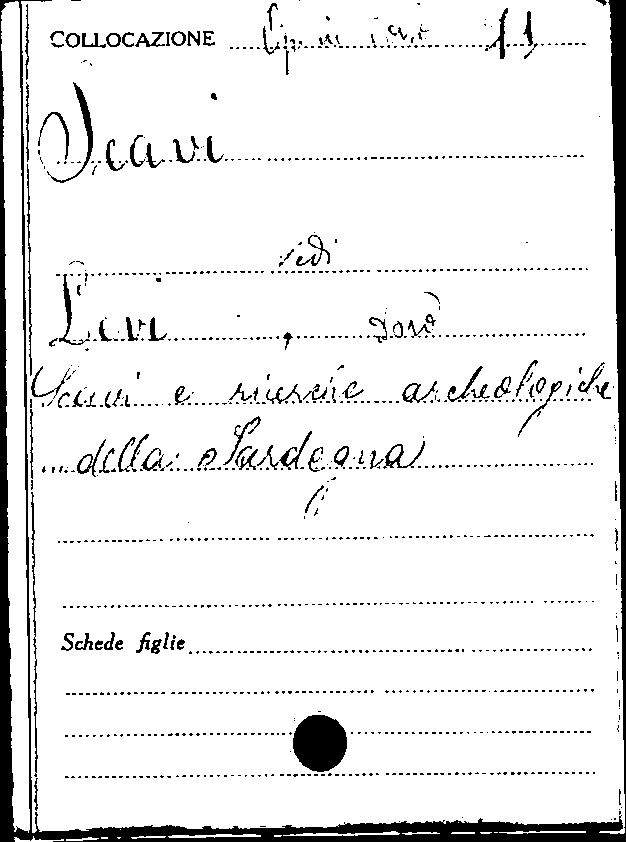 COLLOCAZIONE Op. in 11
Scavi
vedi
Levi , Doro
Scavi e ricerche archeologiche
... della Sardegna
Schede figlie